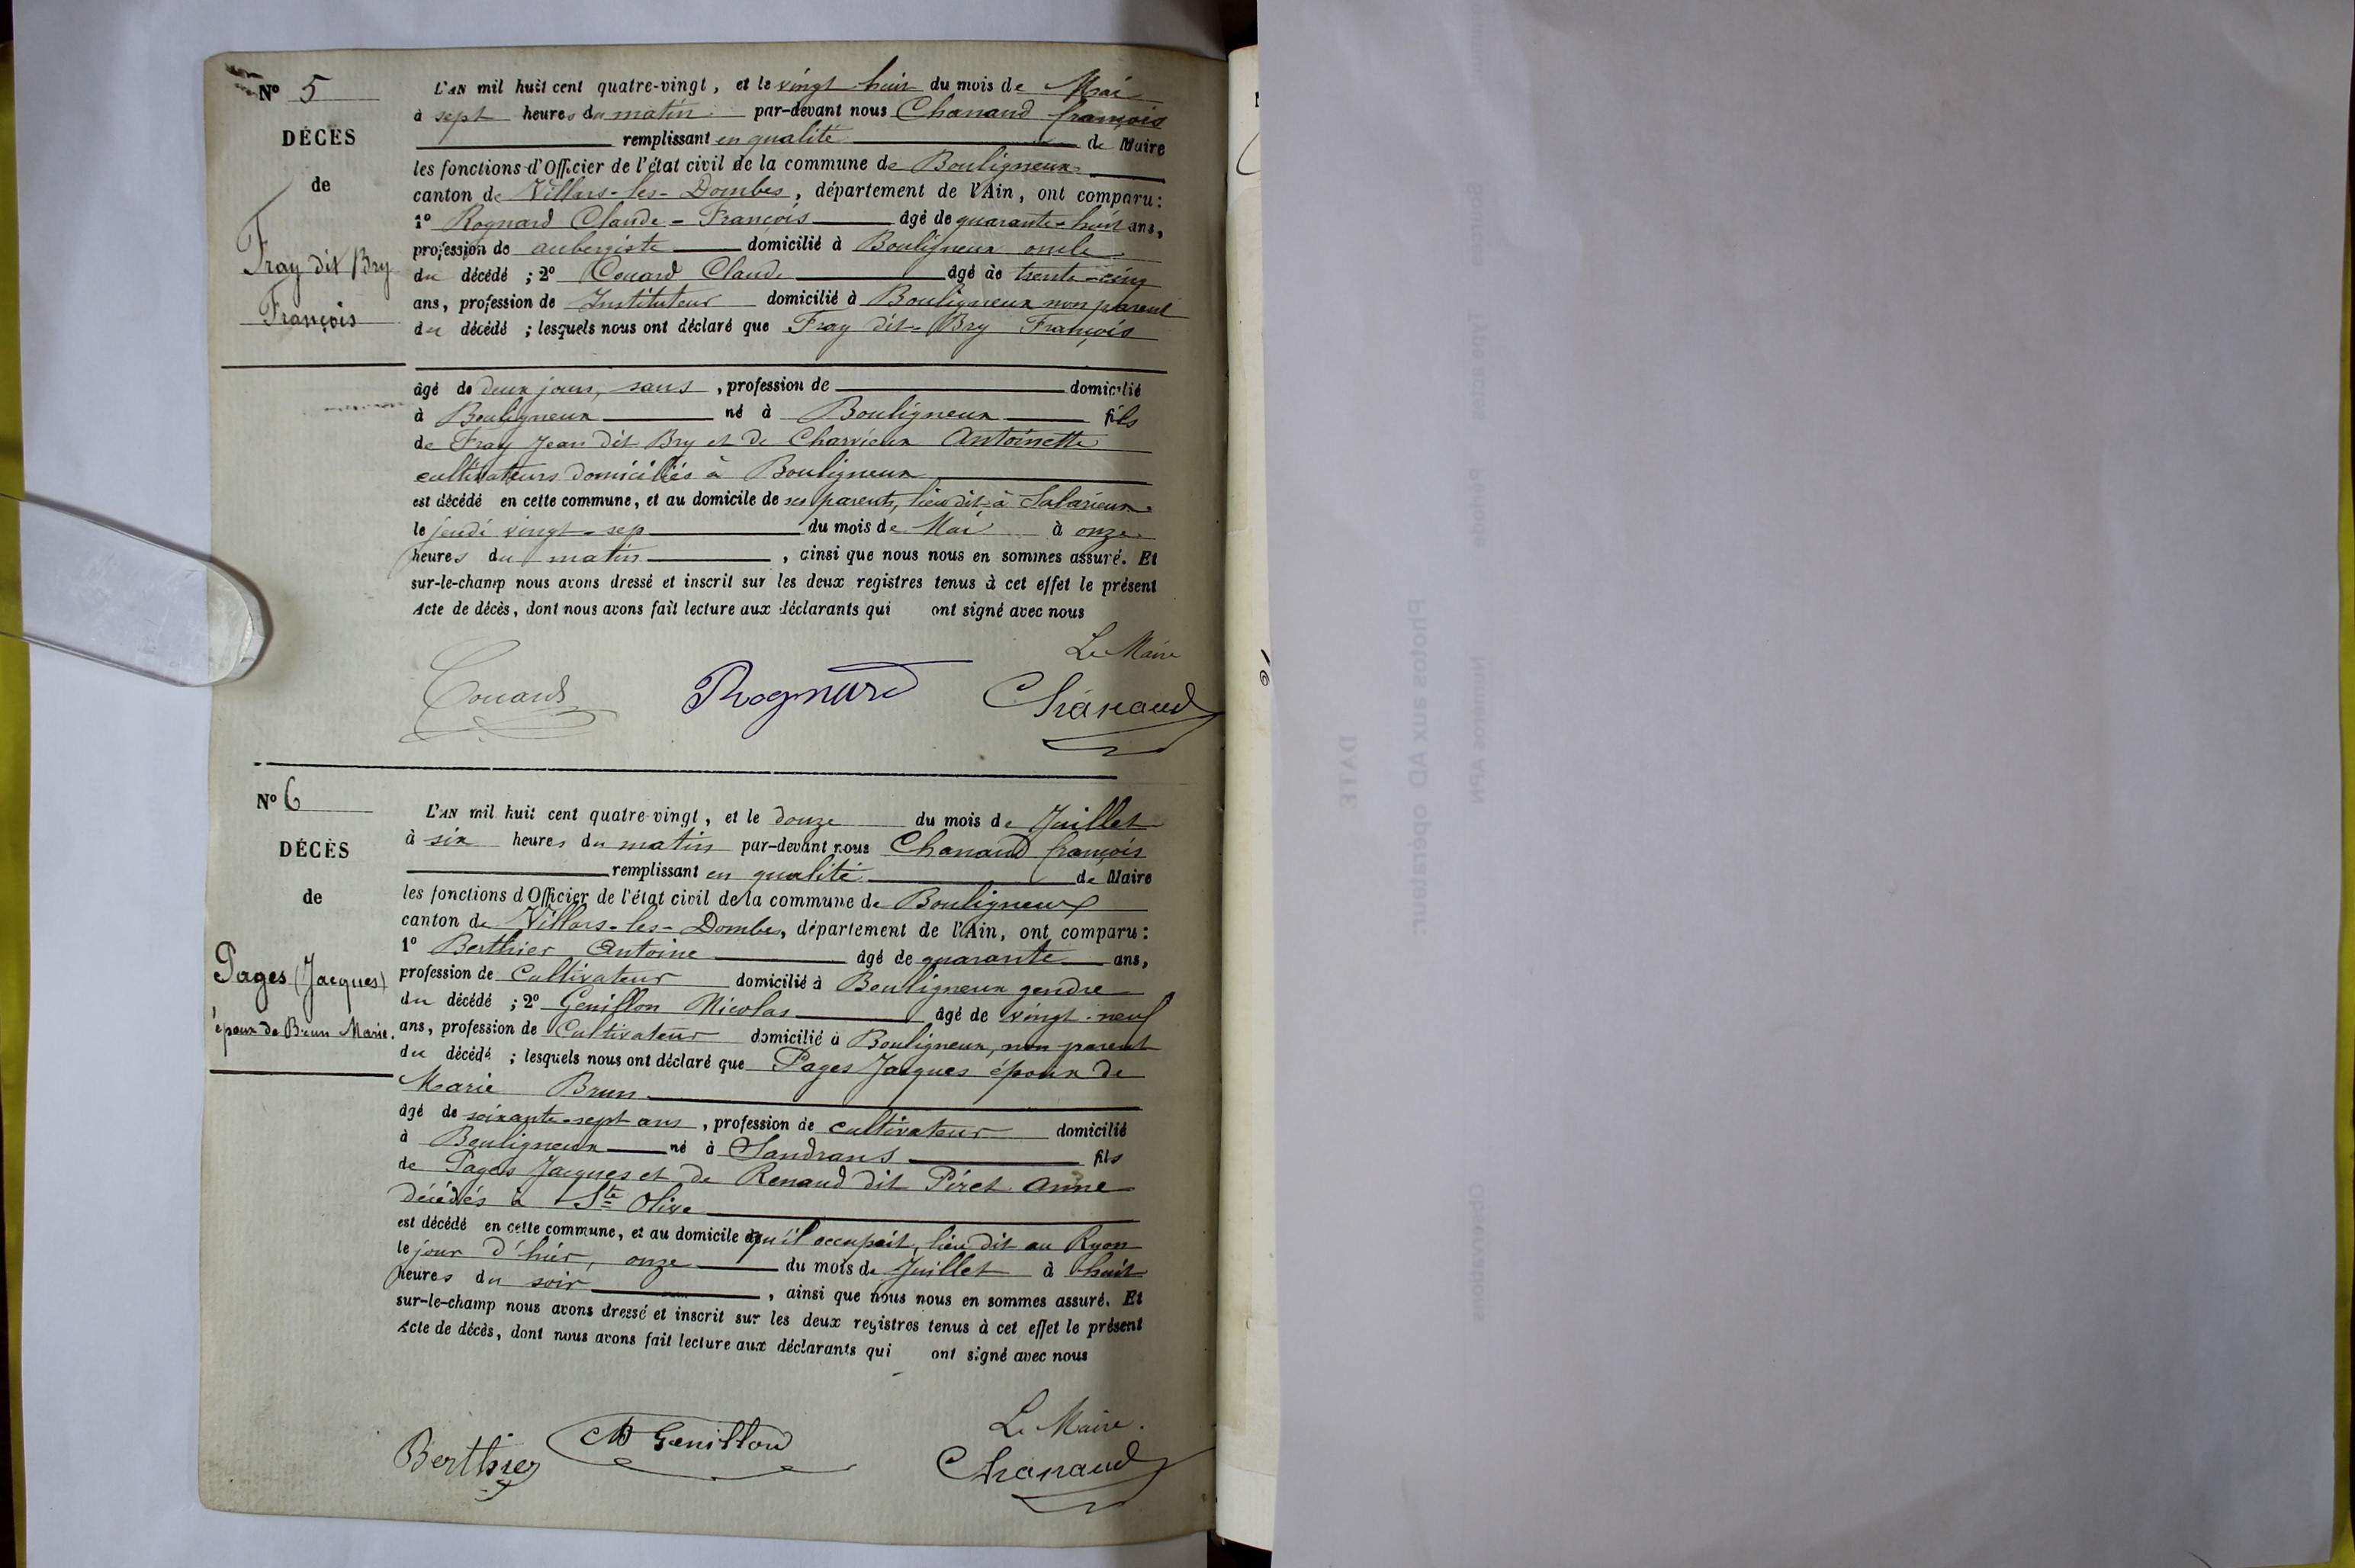 N° 5
DÉCÈS
de
Fray dit Bry
François
L'AN mil huit cent quatre-vingt, et le vingt huit du mois de Mai
à sept heures du matin par-devant nous Chanaud françois
remplissant en qualité de Maire
les fonctions d'Officier de l'état civil de la commune de Bouligneux
canton de Villars-les-Dombes, département de l'Ain, ont comparu:
1° Rognard Claude-François âgé de quarante-huit ans,
profession de aubergiste domicilié à Bouligneux oncle
du décédé ; 2° Couard Claude âgé de trente-cinq
ans, profession de Instituteur domicilié à Bouligneux non parent
du décédé ; lesquels nous ont déclaré que Fray dit-Bry François
âgé de deux jours, sans , profession de domicilié
à Bouligneux né à Bouligneux fils
de Fray Jean dit Bry et de Charvieux Antoinette
cultivateurs domiciliés à Bouligneux
est décédé en cette commune, et au domicile de ses parents, lieu dit à Salarieux
le jeudi vingt-sep du mois de Mai à onze
heures du matin , ainsi que nous nous en sommes assuré. Et
sur-le-champ nous avons dressé et inscrit sur les deux registres tenus à cet effet le présent
Acte de décès, dont nous avons fait lecture aux déclarants qui ont signé avec nous
Le Maire
Couard Rognard Chanaud
N° 6
DÉCÈS
de
Pages (Jacques)
époux de Brun Marie.
L'AN mil huit cent quatre-vingt, et le douze du mois de Juillet
à six heures du matin par-devant nous Chanaud françois
remplissant en qualité de Maire
les fonctions d'Officier de l'état civil de la commune de Bouligneux
canton de Villars-les-Dombes, département de l'Ain, ont comparu:
1° Berthier Antoine âgé de quarante ans,
profession de Cultivateur domicilié à Bouligneux gendre
du décédé ; 2° Genillon Nicolas âgé de vingt-neuf
ans, profession de Cultivateur domicilié à Bouligneux, non parent
du décédé ; lesquels nous ont déclaré que Pages Jacques époux de
Marie Brun
âgé de soixante-sept ans , profession de cultivateur domicilié
à Bouligneux né à Sandrans fils
de Pages Jacques et de Renaud dit Piret Anne
décédés à Ste Olive
est décédé en cette commune, et au domicile qu'il occupait, lieu dit au Ryon
le jour d'hier, onze du mois de Juillet à huit
heures du soir , ainsi que nous nous en sommes assuré. Et
sur-le-champ nous avons dressé et inscrit sur les deux registres tenus à cet effet le présent
Acte de décès, dont nous avons fait lecture aux déclarants qui ont signé avec nous
Le Maire.
Berthier Genillon Chanaud